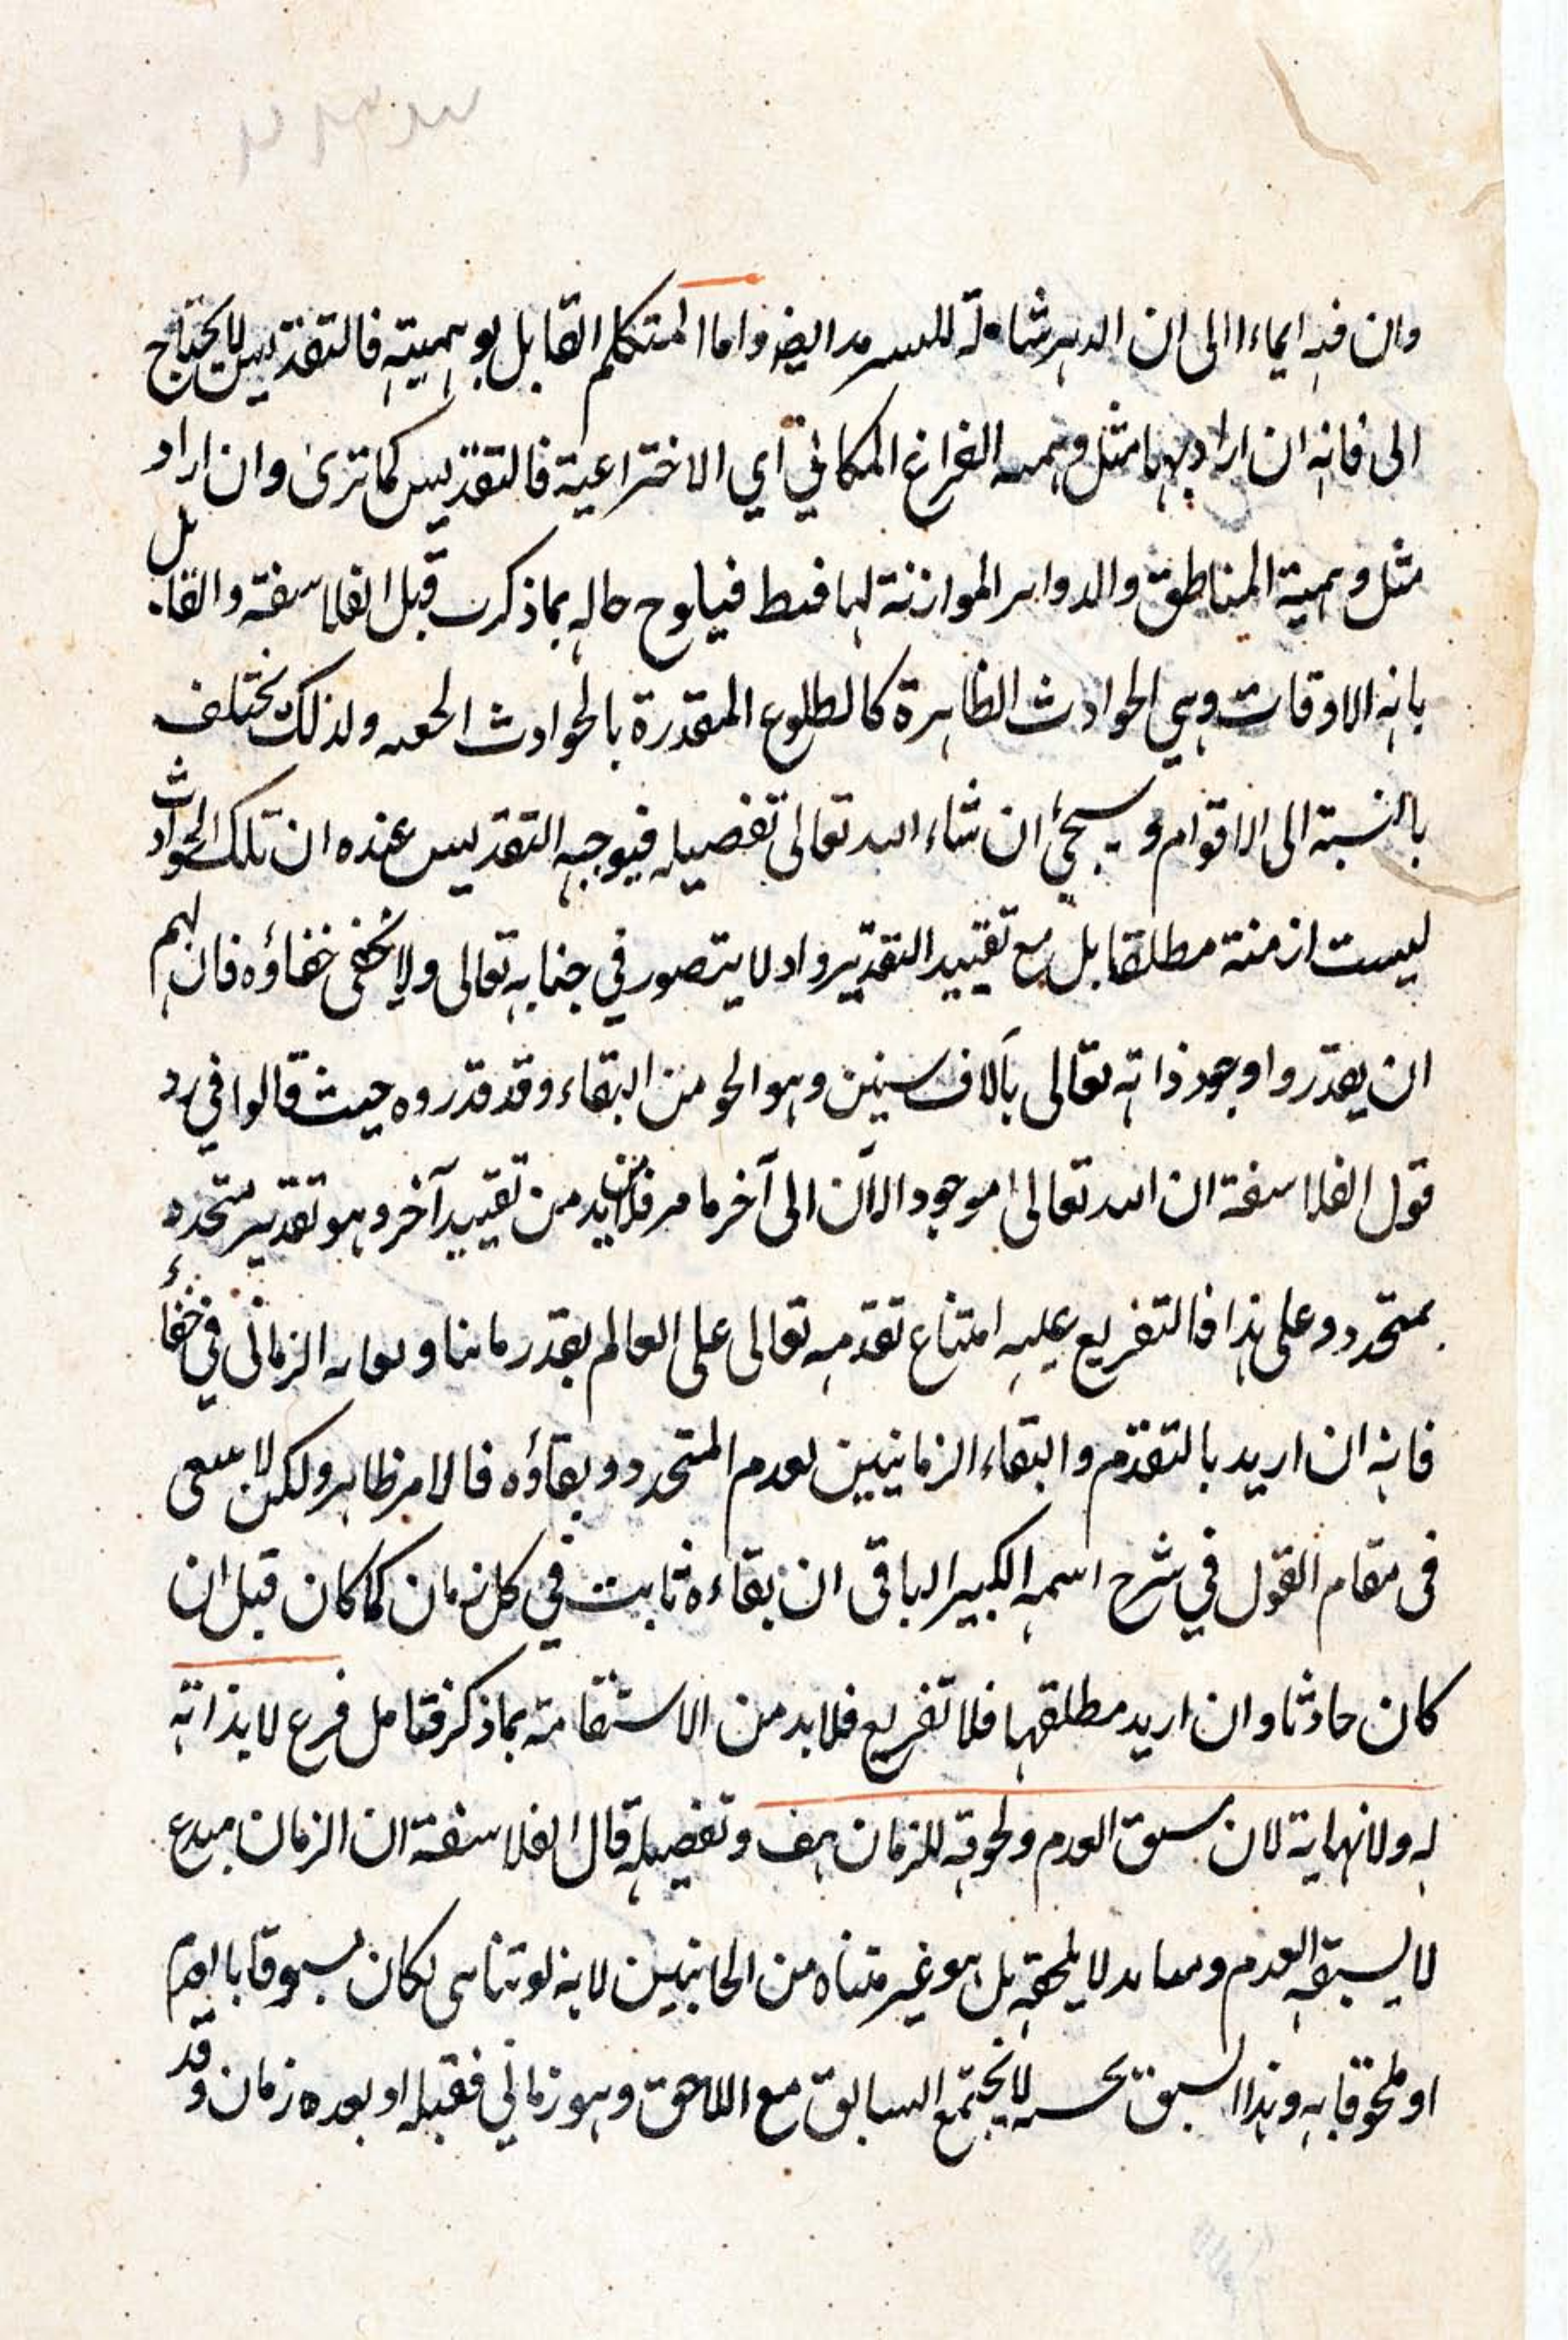 وان فيه ايماء الى ان الدهر شاملة للسرمد ايضا واما المتكلم القايل بوهميته فالتقديس لا يحتاج
الى فانه ان اراد بها مثل وهميه الفراغ المكاني اي الاختراعية فالتقديس كما ترى وان اراد
مثل وهمية المناطق والدواير الموازنة لها فقط فيلوح حاله بما ذكرت قبل الفلاسفة والقايل
بانه الاوقات وهي الحوادث الظاهرة كالطلوع المقدرة بالحوادث ولذلك يختلف
بالنسبة الى الاقوام وسيجئ ان شاء الله تعالى تفصيله فيوجبه التقديس عنده ان تلك الحوادث
ليست ازمنة مطلقا بل مع تقييد التقدير واد لا يتصور في جنابه تعالى ولا يخفى خفاؤه فان لهم
ان يقدروا وجود ذاته تعالى بآلاف سنين وهو الحو من البقاء وقد قدروه حيث قالوا في رد
قول الفلاسفة ان الله تعالى موجود الآن الى آخر ما مر فلا بد من تقييد آخر وهو تقدير متجدد
بمتجدد وعلى هذا فالتفريع عليه امتناع تقدمه تعالى على العالم بقدر ما الزماني في خفاء
فانه ان اريد بالتقدم والبقاء الزمانيين لعدم المتجدد وبقاؤه فالامر ظاهر ولكن لا
فى مقام القول في شرح اسمه الكبير الباقى ان بقاءه ثابت في كل زمان كما كان قبل ان
كان حادثا وان اريد مطلقها فلا تفريع فلا بد من الاستقامة بما ذكر فتامل فرع لا بداته
له ولا نهاية لان سبق العدم ولحوقه للزمان هف وتفصيله قال الفلاسفة ان الزمان مبدع
لا يسبقه العدم لا يلحقه بل هو غير متناه من الجانبين لانه لو تناهى لكان مسبوقا بالعدم
او ملحوقا به وهذا السبق لا يجتمع السابق مع اللاحق وهو زماني فقبله او بعده زمان وقد